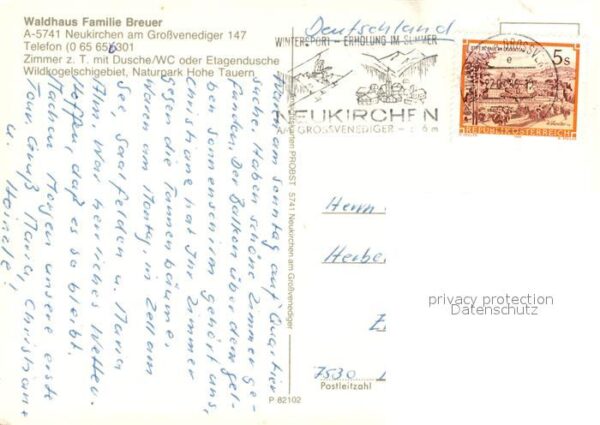 Waldhaus Familie Breuer
A-5741 Neukirchen am Großvenediger 147
Telefon (0 65 65) 6301
Zimmer z. T. mit Dusche/WC oder Etagendusche
Wildkogelschigebiet, Naturpark Hohe Tauern
Deutschland
WINTERSPORT - ERHOLUNG IM SOMMER
NEUKIRCHEN
AM GROSSVENEDIGER
5 s
REPUBLIK ÖSTERREICH
Waren am Sonntag auf Quartier
suche. Haben schöne Zimmer ge-
funden. Der Balken über dem gel-
ben Sonnenschirm gehört uns,
Christiane hat Ihr Zimmer
gegen die Tannenbäume.
Waren am Montag, in Zell am
See, Saalfelden u. Maria
Alm. War herrliches Wetter.
Hoffen, daß es so bleibt.
Machen Morgen unsere erste
Tour. Gruß Maria, Christiane
u. Heinele!
PROBST 5741 Neukirchen am Großvenediger
P 82102
Herrn
7530
Postleitzahl
privacy protection
Datenschutz